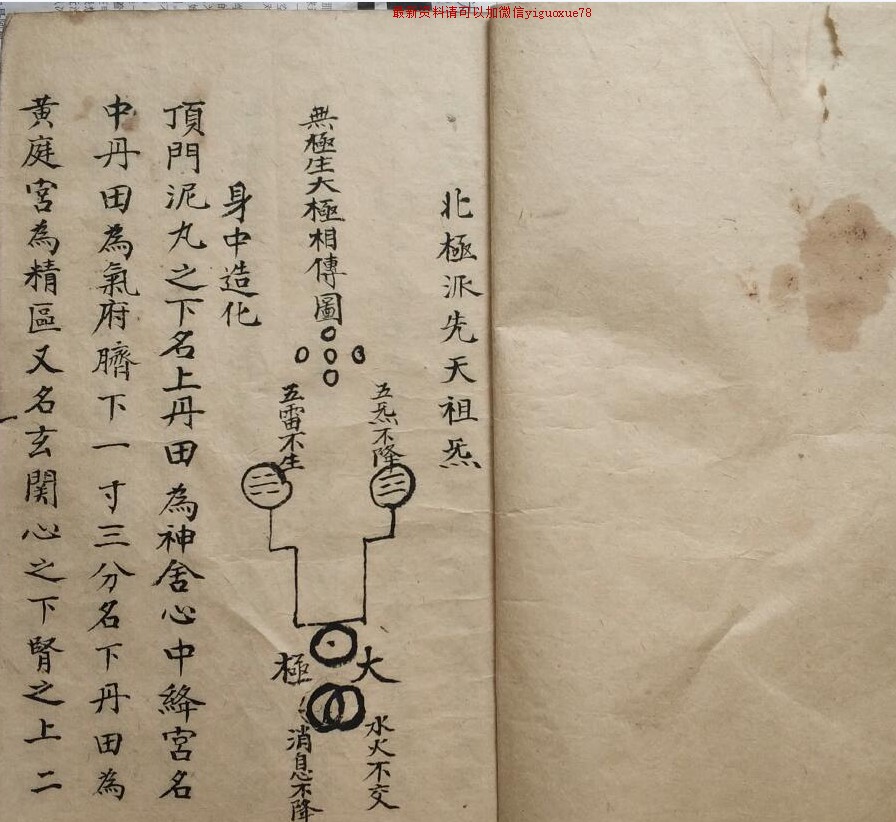 最新资料请可以加微信yiguoxue78
北極派先天祖炁
無極生大極相傳圖
五炁不降
五雷不生
大極
水火不交
消息不降
身中造化
頂門泥丸之下名上丹田為神舍心中絳宮名
中丹田為氣府臍下一寸三分名下丹田為
黄庭宮為精區又名玄関心之下腎之上二